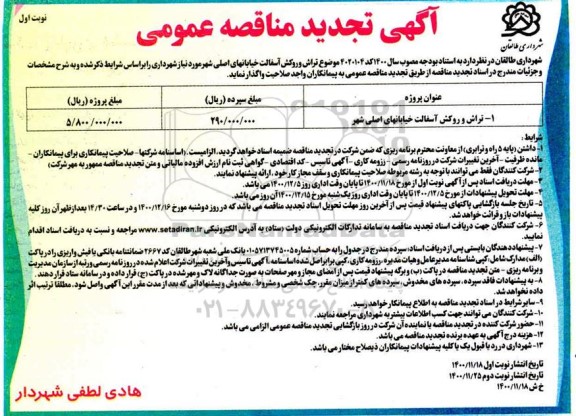 نوبت اول
آگهی تجدید مناقصه عمومی
شهرداری طالقان
شهرداری طالقان در نظر دارد به استناد بودجه مصوب سال ۱۴۰۰ کد ۴۰۲۰۱۰۴ موضوع تراش و روکش آسفالت خیابانهای اصلی شهر مورد نیاز شهرداری را براساس شرایط ذکر شده و به شرح مشخصات
و جزئیات مندرج در اسناد تجدید مناقصه از طریق تجدید مناقصه عمومی به پیمانکاران واجد صلاحیت واگذار نماید.
عنوان پروژه مبلغ سپرده (ریال) مبلغ پروژه (ریال)
۱- تراش و روکش آسفالت خیابانهای اصلی شهر ۲۹۰/۰۰۰/۰۰۰ ۵/۸۰۰/۰۰۰/۰۰۰
شرایط :
۱- داشتن (پایه ۵ راه و ترابری) از معاونت محترم برنامه ریزی که ضمن شرکت در تجدید مناقصه ضمیمه اسناد خواهد گردید. الزامیست. (اساسنامه شرکتها - صلاحیت پیمانکاری برای پیمانکاران -
مانده ظرفیت - آخرین تغییرات شرکت در روزنامه رسمی - رزومه کاری - آگهی تاسیس - کد اقتصادی - گواهی ثبت نام ارزش افزوده مالیاتی و متن تجدید مناقصه ممهور به مهر شرکت)
۲- شرکت کنندگان فقط می توانند با توجه به رشته مربوطه صلاحیت پیمانکاری و سقف مجاز کار خود . ارائه پیشنهاد نمایند.
۳- مهلت دریافت اسناد پس از آگهی نوبت اول از مورخ ۱۴۰۰/۱۱/۱۸ تا پایان وقت اداری روز ۱۴۰۰/۱۲/۵ می باشد.
۴- مهلت تحویل پیشنهادات از مورخ ۱۴۰۰/۱۲/۵ تا پایان وقت اداری روز یک شنبه مورخ ۱۴۰۰/۱۲/۱۵ آن روز می باشد.
۵- تاریخ جلسه بازگشایی پاکتهای پیشنهاد قیمت پس از آخرین روز مهلت تحویل اسناد تجدید مناقصه می باشد که در روز دوشنبه مورخ ۱۴۰۰/۱۲/۱۶ و در ساعت ۱۴/۳۰ بعدازظهر آن روز کلیه
پیشنهادات باز و قرائت خواهد شد.
۶- شرکت کنندگان جهت دریافت اسناد تجدید مناقصه به سامانه تدارکات الکترونیکی دولت (ستاد) به آدرس الکترونیکی www.setadiran.ir مراجعه و نسبت به دریافت اسناد اقدام
نمایند.
۷- پیشنهاد دهندگان بایستی پس از دریافت اسناد: سپرده مندرج در جدول را به حساب شماره ۰۱۰۵۷۱۳۷۴۵۰۰۵ بانک ملی شعبه شهر طالقان کد ۲۶۶۷ ضمانتنامه بانکی یا فیش واریزی را در پاکت
(الف) مدارک شامل، کپی شناسنامه مدیرعامل و هیات مدیره - رزومه کاری، کپی برابر اصل شده اساسنامه ، آگهی تاسیس و آخرین تغییرات شرکت اعلام شده در روزنامه رسمی و رتبه از سازمان مدیریت
و برنامه ریزی - متن تجدید مناقصه در پاکت (ب) و برگه پیشنهاد قیمت پس از امضای مجاز و مهر صفحات به صورت جداگانه لاک و مهر شده در پاکت (ج) قرار داده و در سامانه ستاد قرار دهند.
۸- به پیشنهادات فاقد سپرده . سپرده های مخدوش . سپرده های کمتر از میزان مقرر. چک شخصی و مشروط . مخدوش و پیشنهاداتی که بعد از مدت مقرر این آگهی واصل شود. مطلقا ترتیب اثر
داده نخواهد شد.
۹- سایر شرایط در اسناد تجدید مناقصه به اطلاع پیمانکار خواهد رسید.
۱۰- شرکت کنندگان می توانند جهت کسب اطلاعات بیشتر به شهرداری مراجعه نمایند.
۱۱- حضور شرکت کننده در تجدید مناقصه یا نماینده آن شرکت در روز بازگشایی تجدید مناقصه عمومی الزامی می باشد.
۱۲- هزینه درج آگهی به عهده برنده تجدید مناقصه می باشد.
۱۳- شهرداری در رد یا قبول یک یا کلیه پیشنهادات پیمانکاران ذیصلاح مختار می باشد.
۰۲۱-۸۸۳۴۹۶۷
تاریخ انتشار نوبت اول ۱۴۰۰/۱۱/۱۸
تاریخ انتشار نوبت دوم ۱۴۰۰/۱۱/۲۵
خ ش ۱۴۰۰/۱۱/۱۸
هادی لطفی شهردار